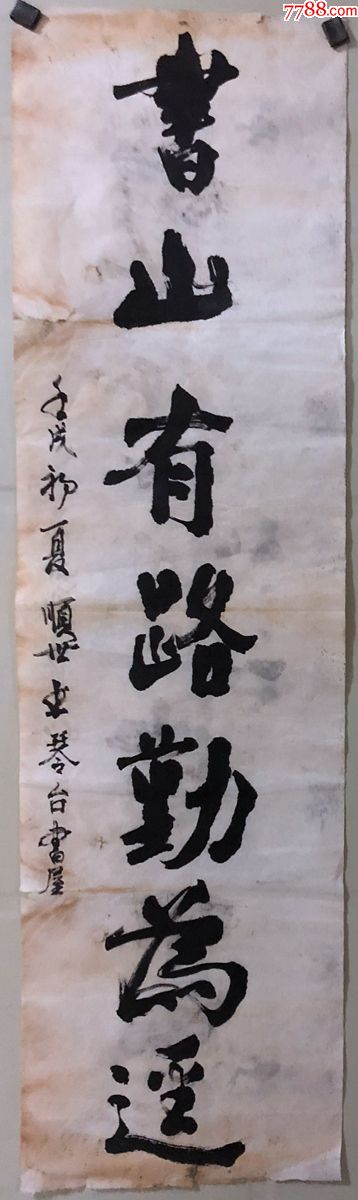 7788.com
書山有路勤為逕
壬戌初夏順世書琴台書屋